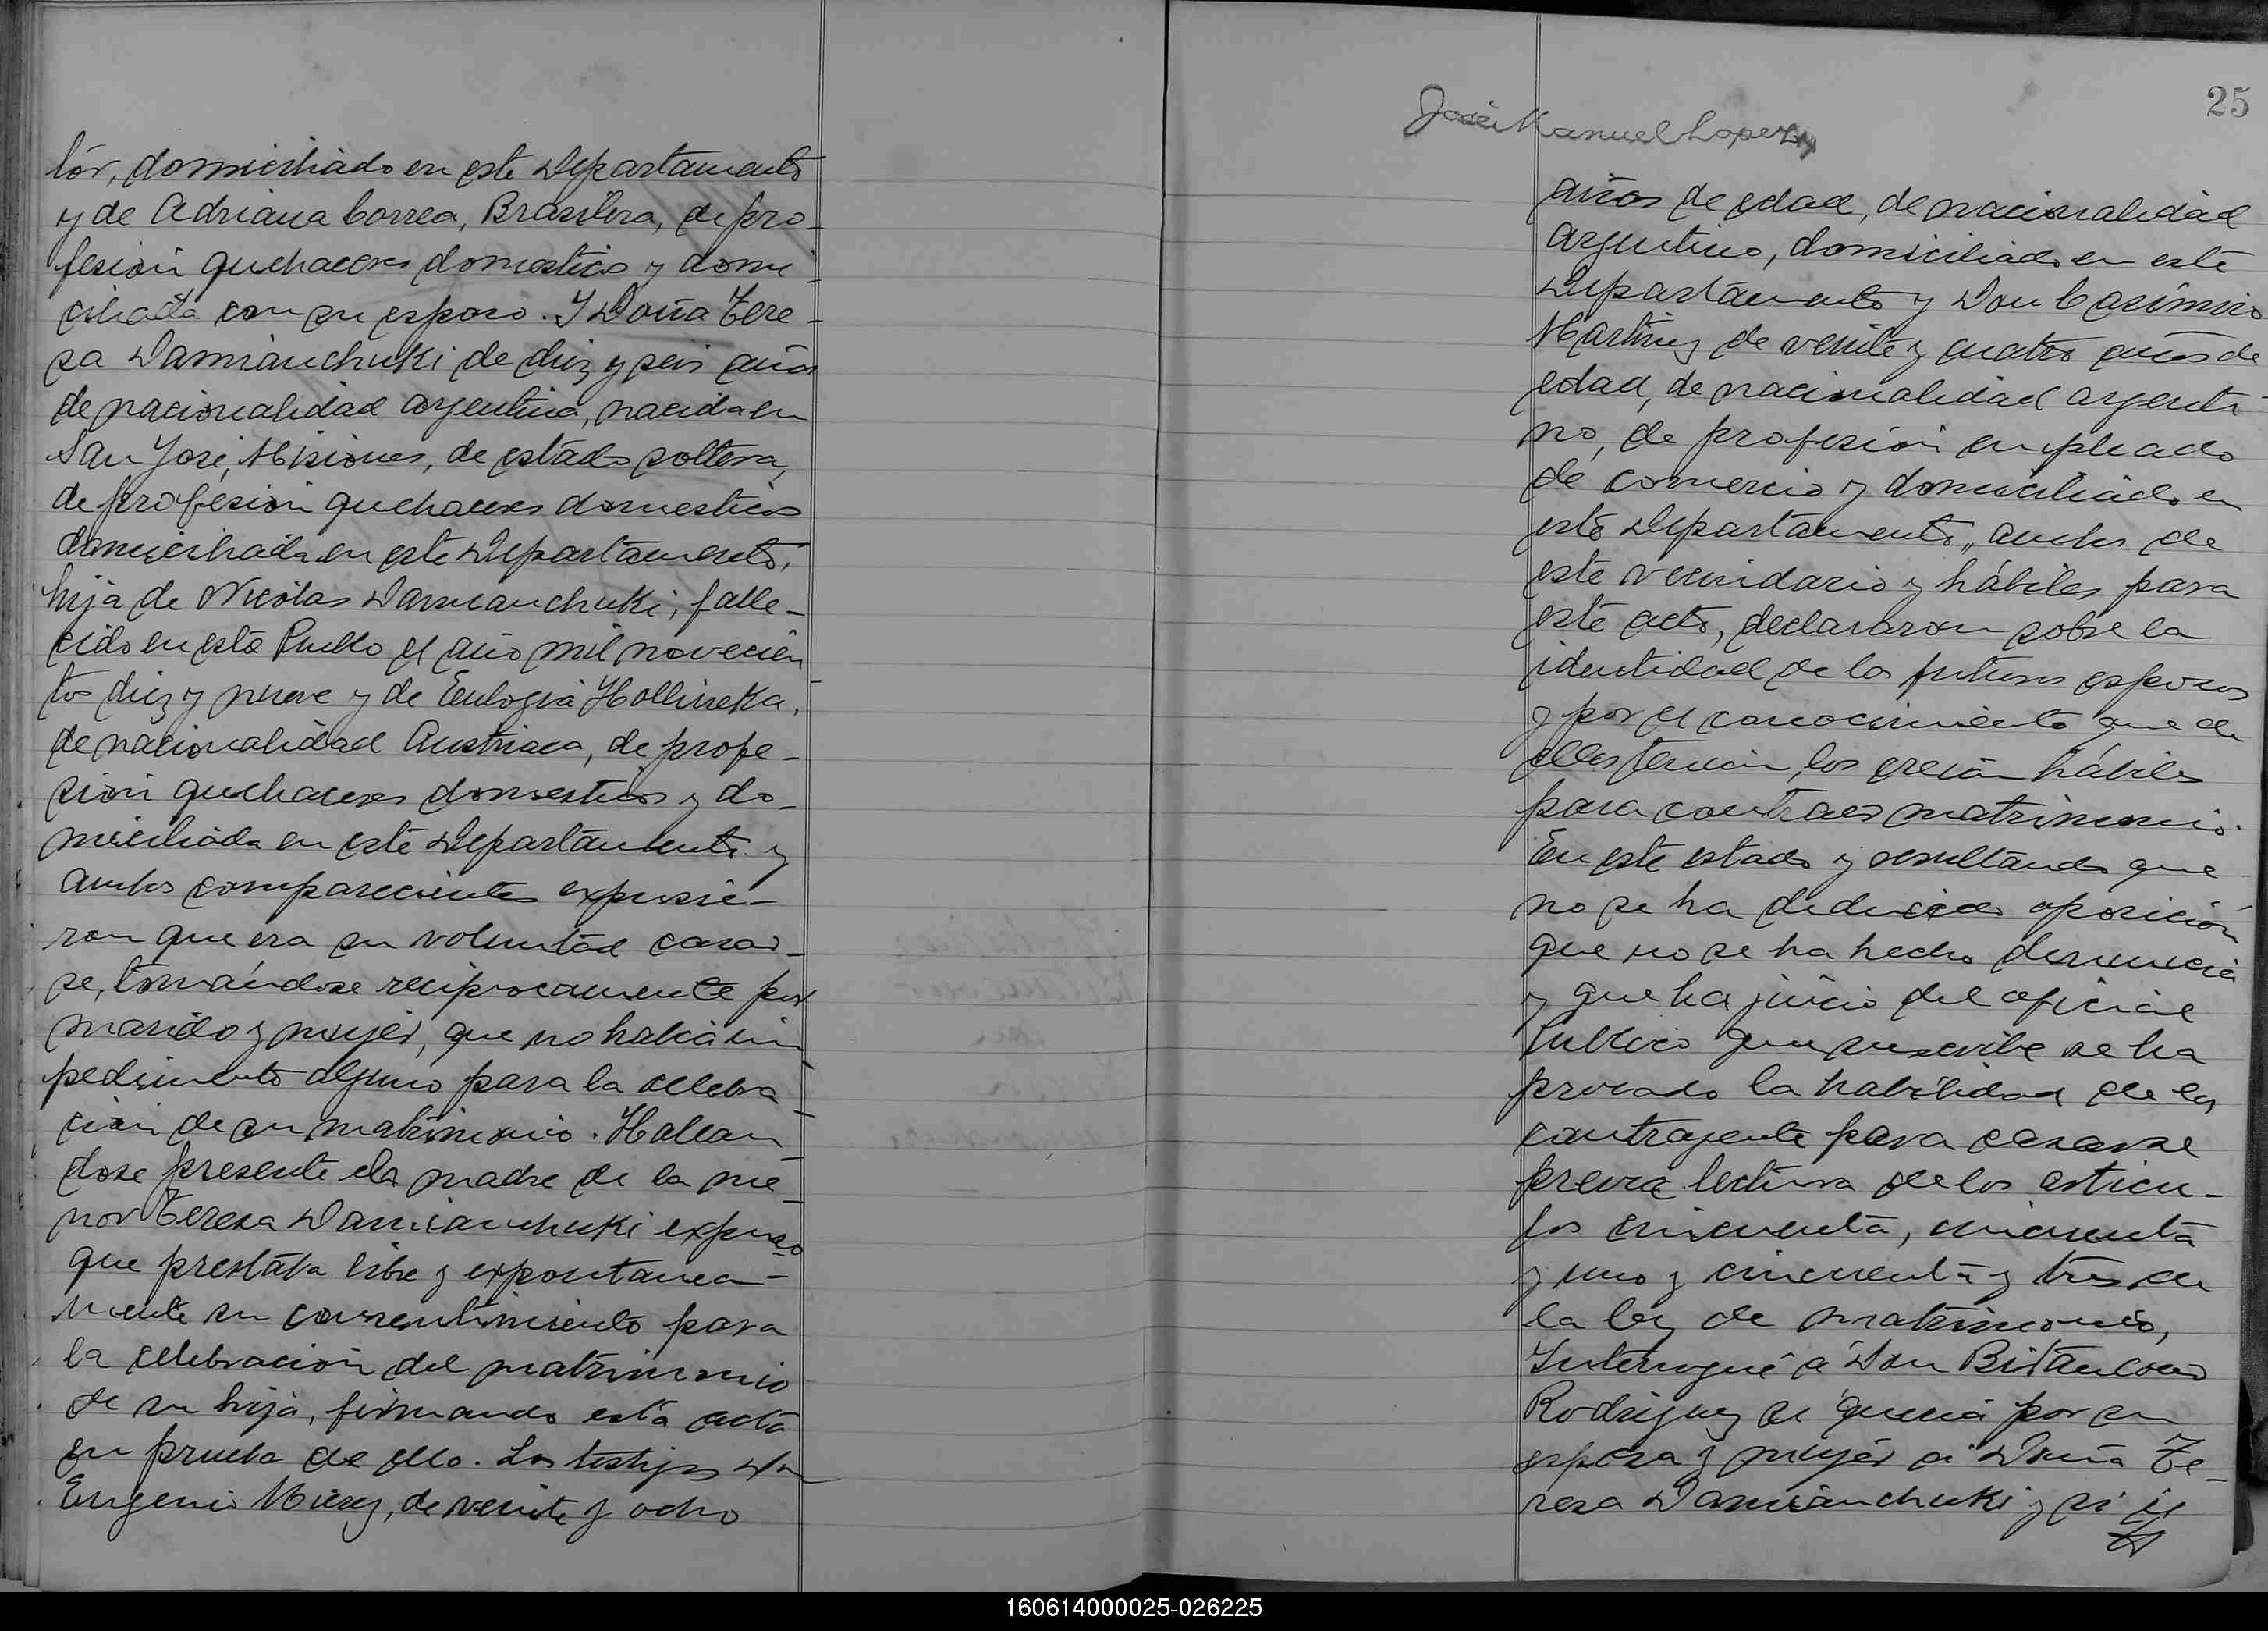 tór, domiciliado en este Departamento
y de Adriana Correa, Brasilera, de pro-
fesión quehaceres domestico y domi-
ciliada con su esposo. Y Doña Tere-
sa Damianchuki de diez y seis años
de nacionalidad argentina, nacida en
San José, Misiones, de estado soltera,
de profesión quehaceres domesticos
domiciliada en este Departamento,
hija de Nicólas Damianchuki, falle-
cido en este Pueblo el año mil novecien
tos diez y nueve y de Eulogia Hollineka,
de nacionalidad Austriaca, de profe-
sión quehaceres domesticos y do-
miciliada en este Departamento y
ambos comparecientes expusie-
ron que era su voluntad casar-
se, tomándose reciprocamente por
marido y mujér, que no habia im
pedimento alguno para la celebra-
ción de su matrimonio. Hallan
dose presente la madre de la me-
nor Teresa Damianchuki expuso
que prestaba libre y expontanea-
mente su consentimiento para
la celebración del matrimonio
de su hija, firmando esta acta
en prueba de ello. Los testigos Don
Eugenio Mierez, de veinte y ocho
25
José Manuel Lopez
años de edad, de nacionalidad
argentino, domiciliado en este
Departamento y Don Casimiro
Martinez de veinte y cuatro años de
edad, de nacionalidad argenti-
no, de profesión empleado
de comercio y domiciliado en
este Departamento, ambos de
este vecindario y hábiles para
este acto, declararon sobre la
identidad de los futuros esposos
y por el conocimiento que de
ellos tenian, los creian hábiles
para contraer matrimonio.
En este estado y resultando que
no se ha deducido oposición
que no se ha hecho denuncia
y que ha juicio del oficial
Publico que suscribe se ha
provado la habilidad de los
contrayente para casarse
previa lectura de los articu-
los cincuenta, cincuenta
y uno y cincuenta y tres de
la ley de matrimonio,
Interrogué a Don Bitancour
Rodriguez si queria por su
esposa y mujér a Doña Te-
resa Damianchuki y si
160614000025-026225